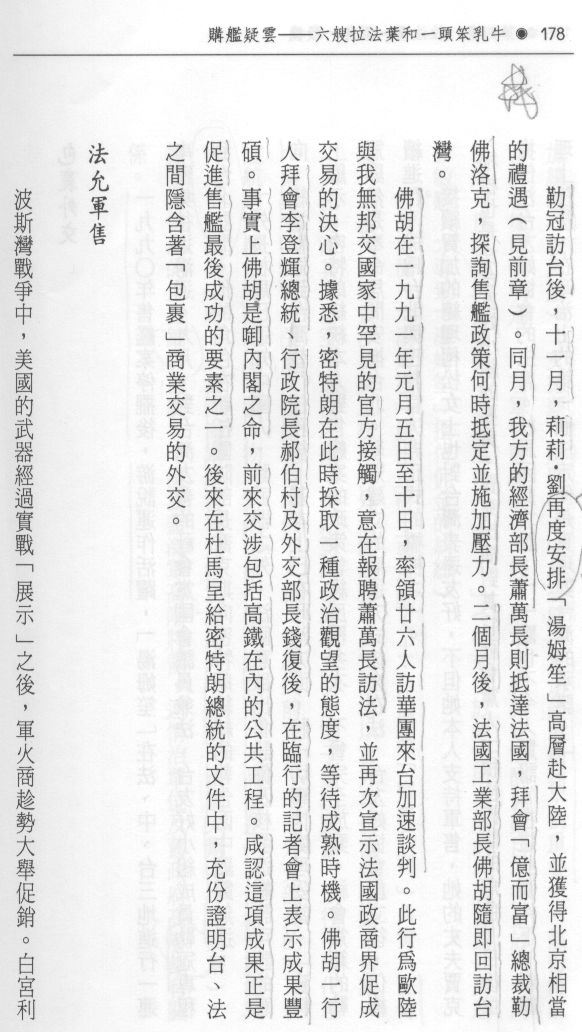 購艦疑雲——六艘拉法葉和一頭笨乳牛 ◉ 178
勒冠訪台後，十一月，莉莉·劉再度安排「湯姆笙」高層赴大陸，並獲得北京相當
的禮遇（見前章）。同月，我方的經濟部長蕭萬長則抵達法國，拜會「億而富」總裁勒
佛洛克，探詢售艦政策何時抵定並施加壓力。二個月後，法國工業部長佛胡隨即回訪台
灣。
佛胡在一九九一年元月五日至十日，率領廿六人訪華團來台加速談判。此行為歐陸
與我無邦交國家中罕見的官方接觸，意在報聘蕭萬長訪法，並再次宣示法國政商界促成
交易的決心。據悉，密特朗在此時採取一種政治觀望的態度，等待成熟時機。佛胡一行
人拜會李登輝總統、行政院長郝伯村及外交部長錢復後，在臨行的記者會上表示成果豐
碩。事實上佛胡是啣內閣之命，前來交涉包括高鐵在內的公共工程。咸認這項成果正是
促進售艦最後成功的要素之一。後來在杜馬呈給密特朗總統的文件中，充份證明台、法
之間隱含著「包裹」商業交易的外交。
法允軍售
波斯灣戰爭中，美國的武器經過實戰「展示」之後，軍火商趁勢大舉促銷。白宮利